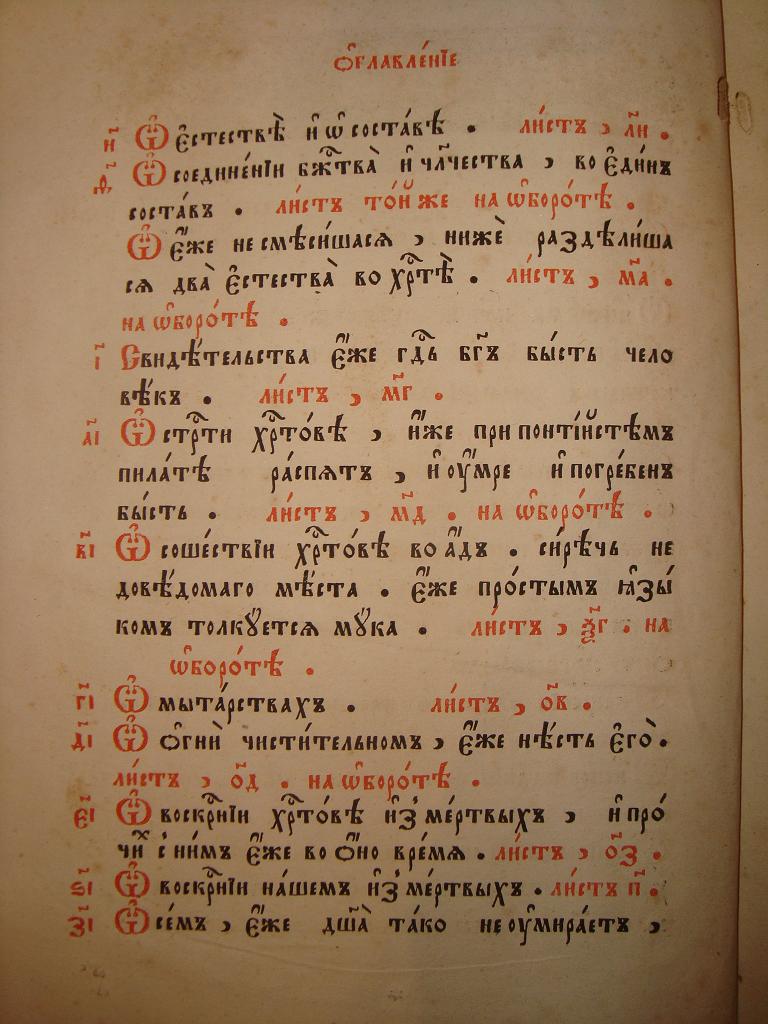 Ѻ҆главле́нїе
и҃ Ѽ є҆стествѣ̀ и҆ ѡ҆ соста́вѣ . ли́стъ , л҃и .
ѳ҃ Ѽ соедине́нїи бж҃тва̀ и҆ чл҃чества , во є҆ди́нъ
соста́въ . ли́стъ то́йже на ѡ҆боро́тѣ .
Ѽ є҆́же не смѣси́шася , нижѐ раздѣли́ша
ся два̀ є҆стества̀ во хрⷭ҇тѣ̀ . ли́стъ , м҃а .
на ѡ҆боро́тѣ .
і҃ Свидѣ́тельства є҆́же гдⷭ҇ь бг҃ъ бы́сть чело
вѣ́къ . ли́стъ , м҃г .
а҃і Ѽ стрⷭ҇ти хрⷭ҇то́вѣ , и҆́же при понті́йстѣмъ
пила́тѣ ра́спятъ , и҆ ᲂу҆́мре и҆ погре́бенъ
бы́сть . ли́стъ , м҃д . на ѡ҆боро́тѣ .
в҃і Ѽ соше́ствїи хрⷭ҇то́вѣ во а҆́дъ . си́рѣчь не
довѣ́домаго мѣ́ста . є҆́же про́стымъ ꙗ҆зы́
комъ толкꙋ́ется мꙋ́ка . ли́стъ , ѯ҃г . на
ѡ҆боро́тѣ .
г҃і Ѽ мыта́рствахъ . ли́стъ , о҃в .
д҃і Ѽ ѻ҆гнѝ чисти́тельномъ , є҆́же нѣ́сть є҆гѡ̀ .
ли́стъ , о҃д . на ѡ҆боро́тѣ .
є҃і Ѽ воскр҃нїи хрⷭ҇то́вѣ и҆з̾ ме́ртвыхъ , и҆ про́
чиⷯ с ни́мъ є҆́же во ѻ҆́но вре́мя . ли́стъ , о҃з .
ѕ҃і Ѽ воскр҃нїи на́шемъ и҆з̾ ме́ртвыхъ . ли́стъ п҃ .
з҃і Ѽ се́мъ , є҆́же дш҃а̀ та́ко не ᲂу҆мира́етъ ,